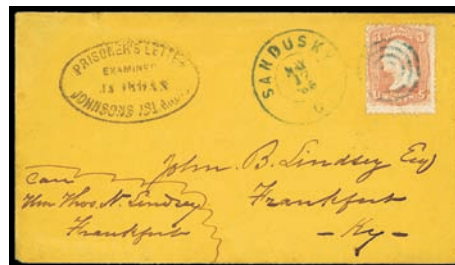 PRISONER'S LETTER
EXAMINED
JOHNSON'S ISL
SANDUSKY
MAY
17
O
3 3
John. B. Lindsey Esq
Frankfort
— Ky —
care
Hon Thos. N. Lindsey
Frankfort